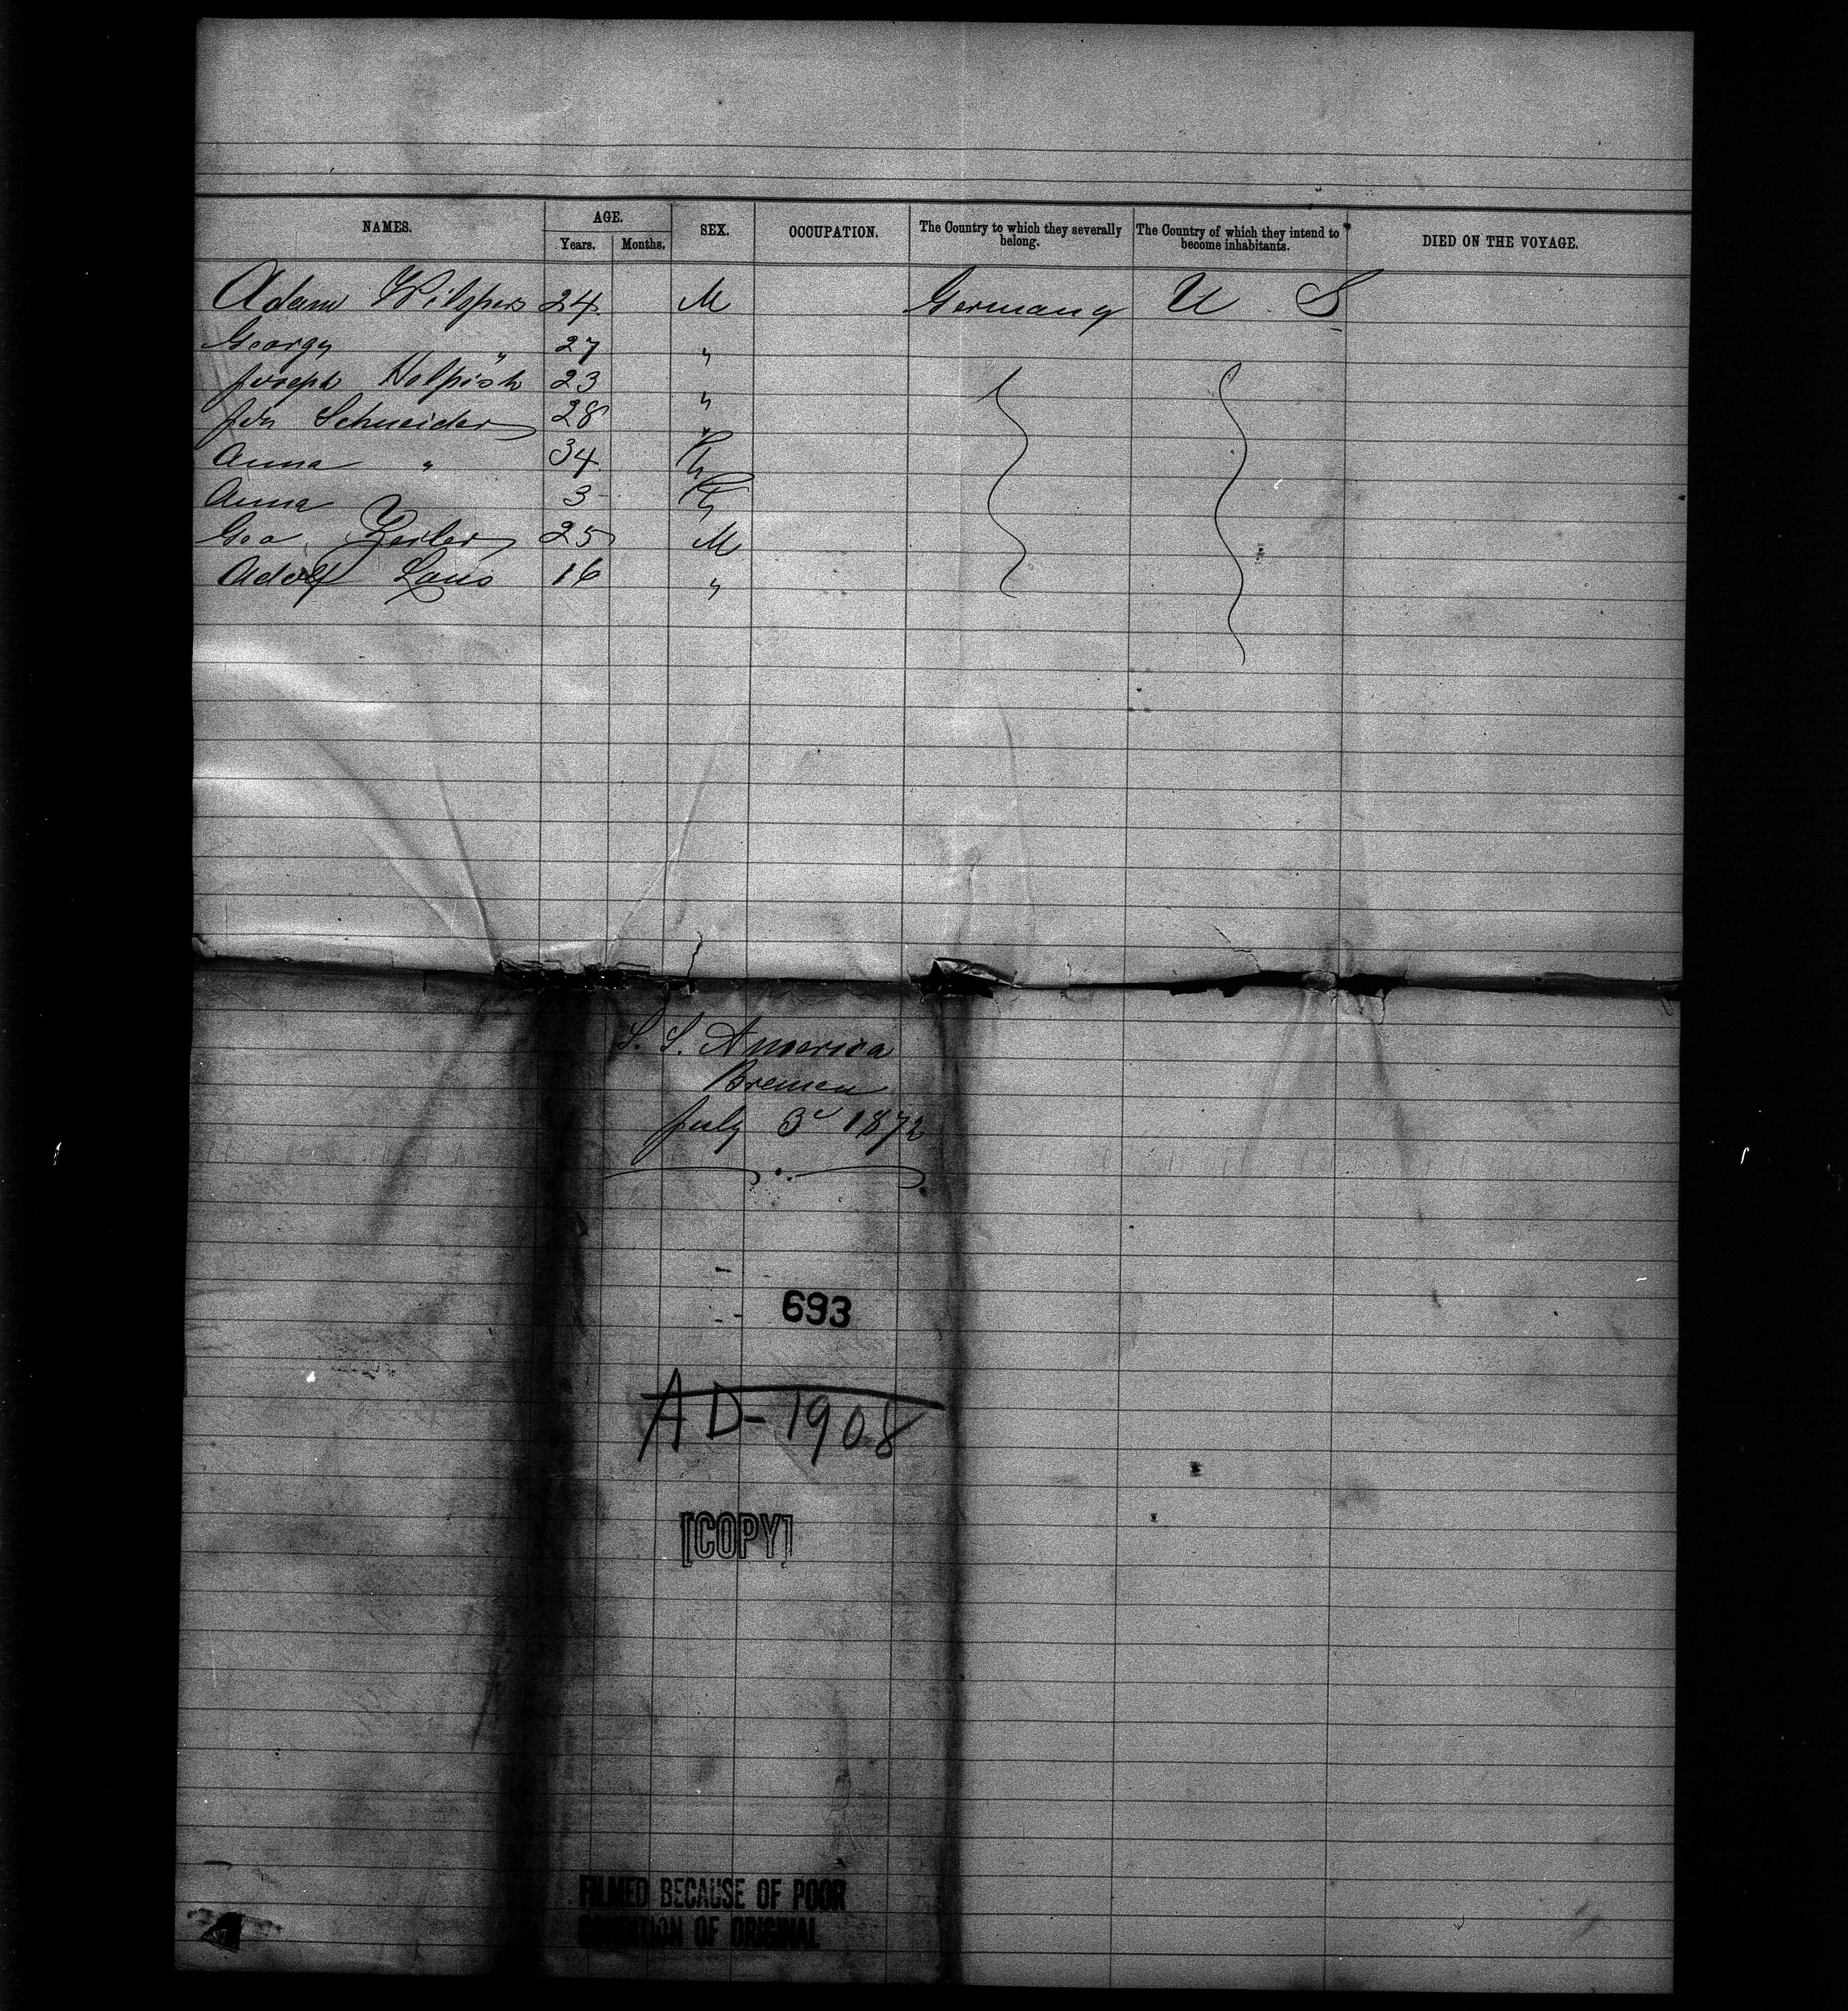 NAMES. AGE. SEX. OCCUPATION. The Country to which they severally belong. The Country of which they intend to become inhabitants. DIED ON THE VOYAGE.
Years. Months.
Adam 24 M Germany U S
Georg " 27 "
Joseph 23 "
Joh Schneider 28 "
Anna " 34
Anna 3
Geo Zeiler 25 M
Adolf 16 "
S. S. America
Bremen
July 3d 1872
693
AD-1908
[COPY]
FILMED BECAUSE OF POOR
CONDITION OF ORIGINAL